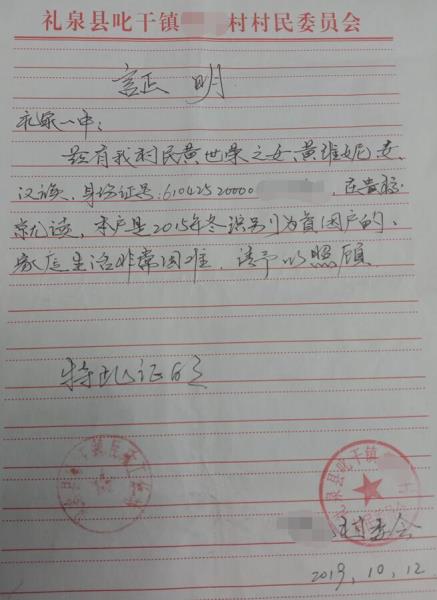 礼泉县叱干镇 村村民委员会
証 明
礼泉一中：
兹有我村民黄世荣之女、黄维妮、女、
汉族、身份证号：61042520000 ，在贵校
就读，本户是2015年冬识别为贫困户的、
家庭生活非常困难，请予以照顾
特此证明
礼泉县叱干镇
村委会
2019，10，12